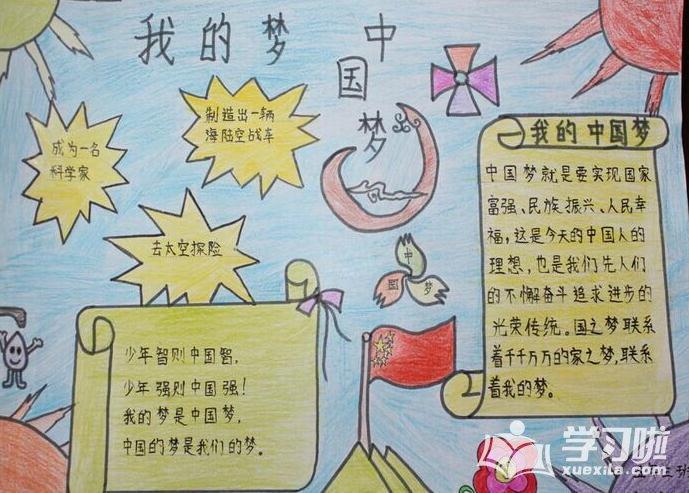 我的梦 中国梦
成为一名
科学家
制造出一辆
海陆空战车
去太空探险
中国梦
少年智则中国智,
少年强则中国强!
我的梦是中国梦,
中国的梦是我们的梦。
我的中国梦
中国梦就是要实现国家
富强、民族振兴、人民幸
福,这是今天的中国人的
理想,也是我们先人们
的不懈奋斗追求进步的
光荣传统。国之梦联系
着千千万万的家之梦,联系
着我的梦。
学习啦
xuexila.com